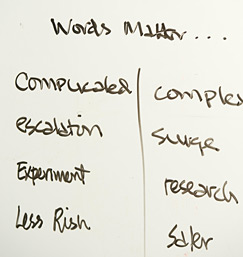 Words Matter...
Complicated complex
escalation surge
Experiment research
Less Risk Safer